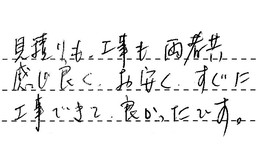 見積りも、工事も両者共
感じ良く、お安く、すぐに
工事できて、良かったです。